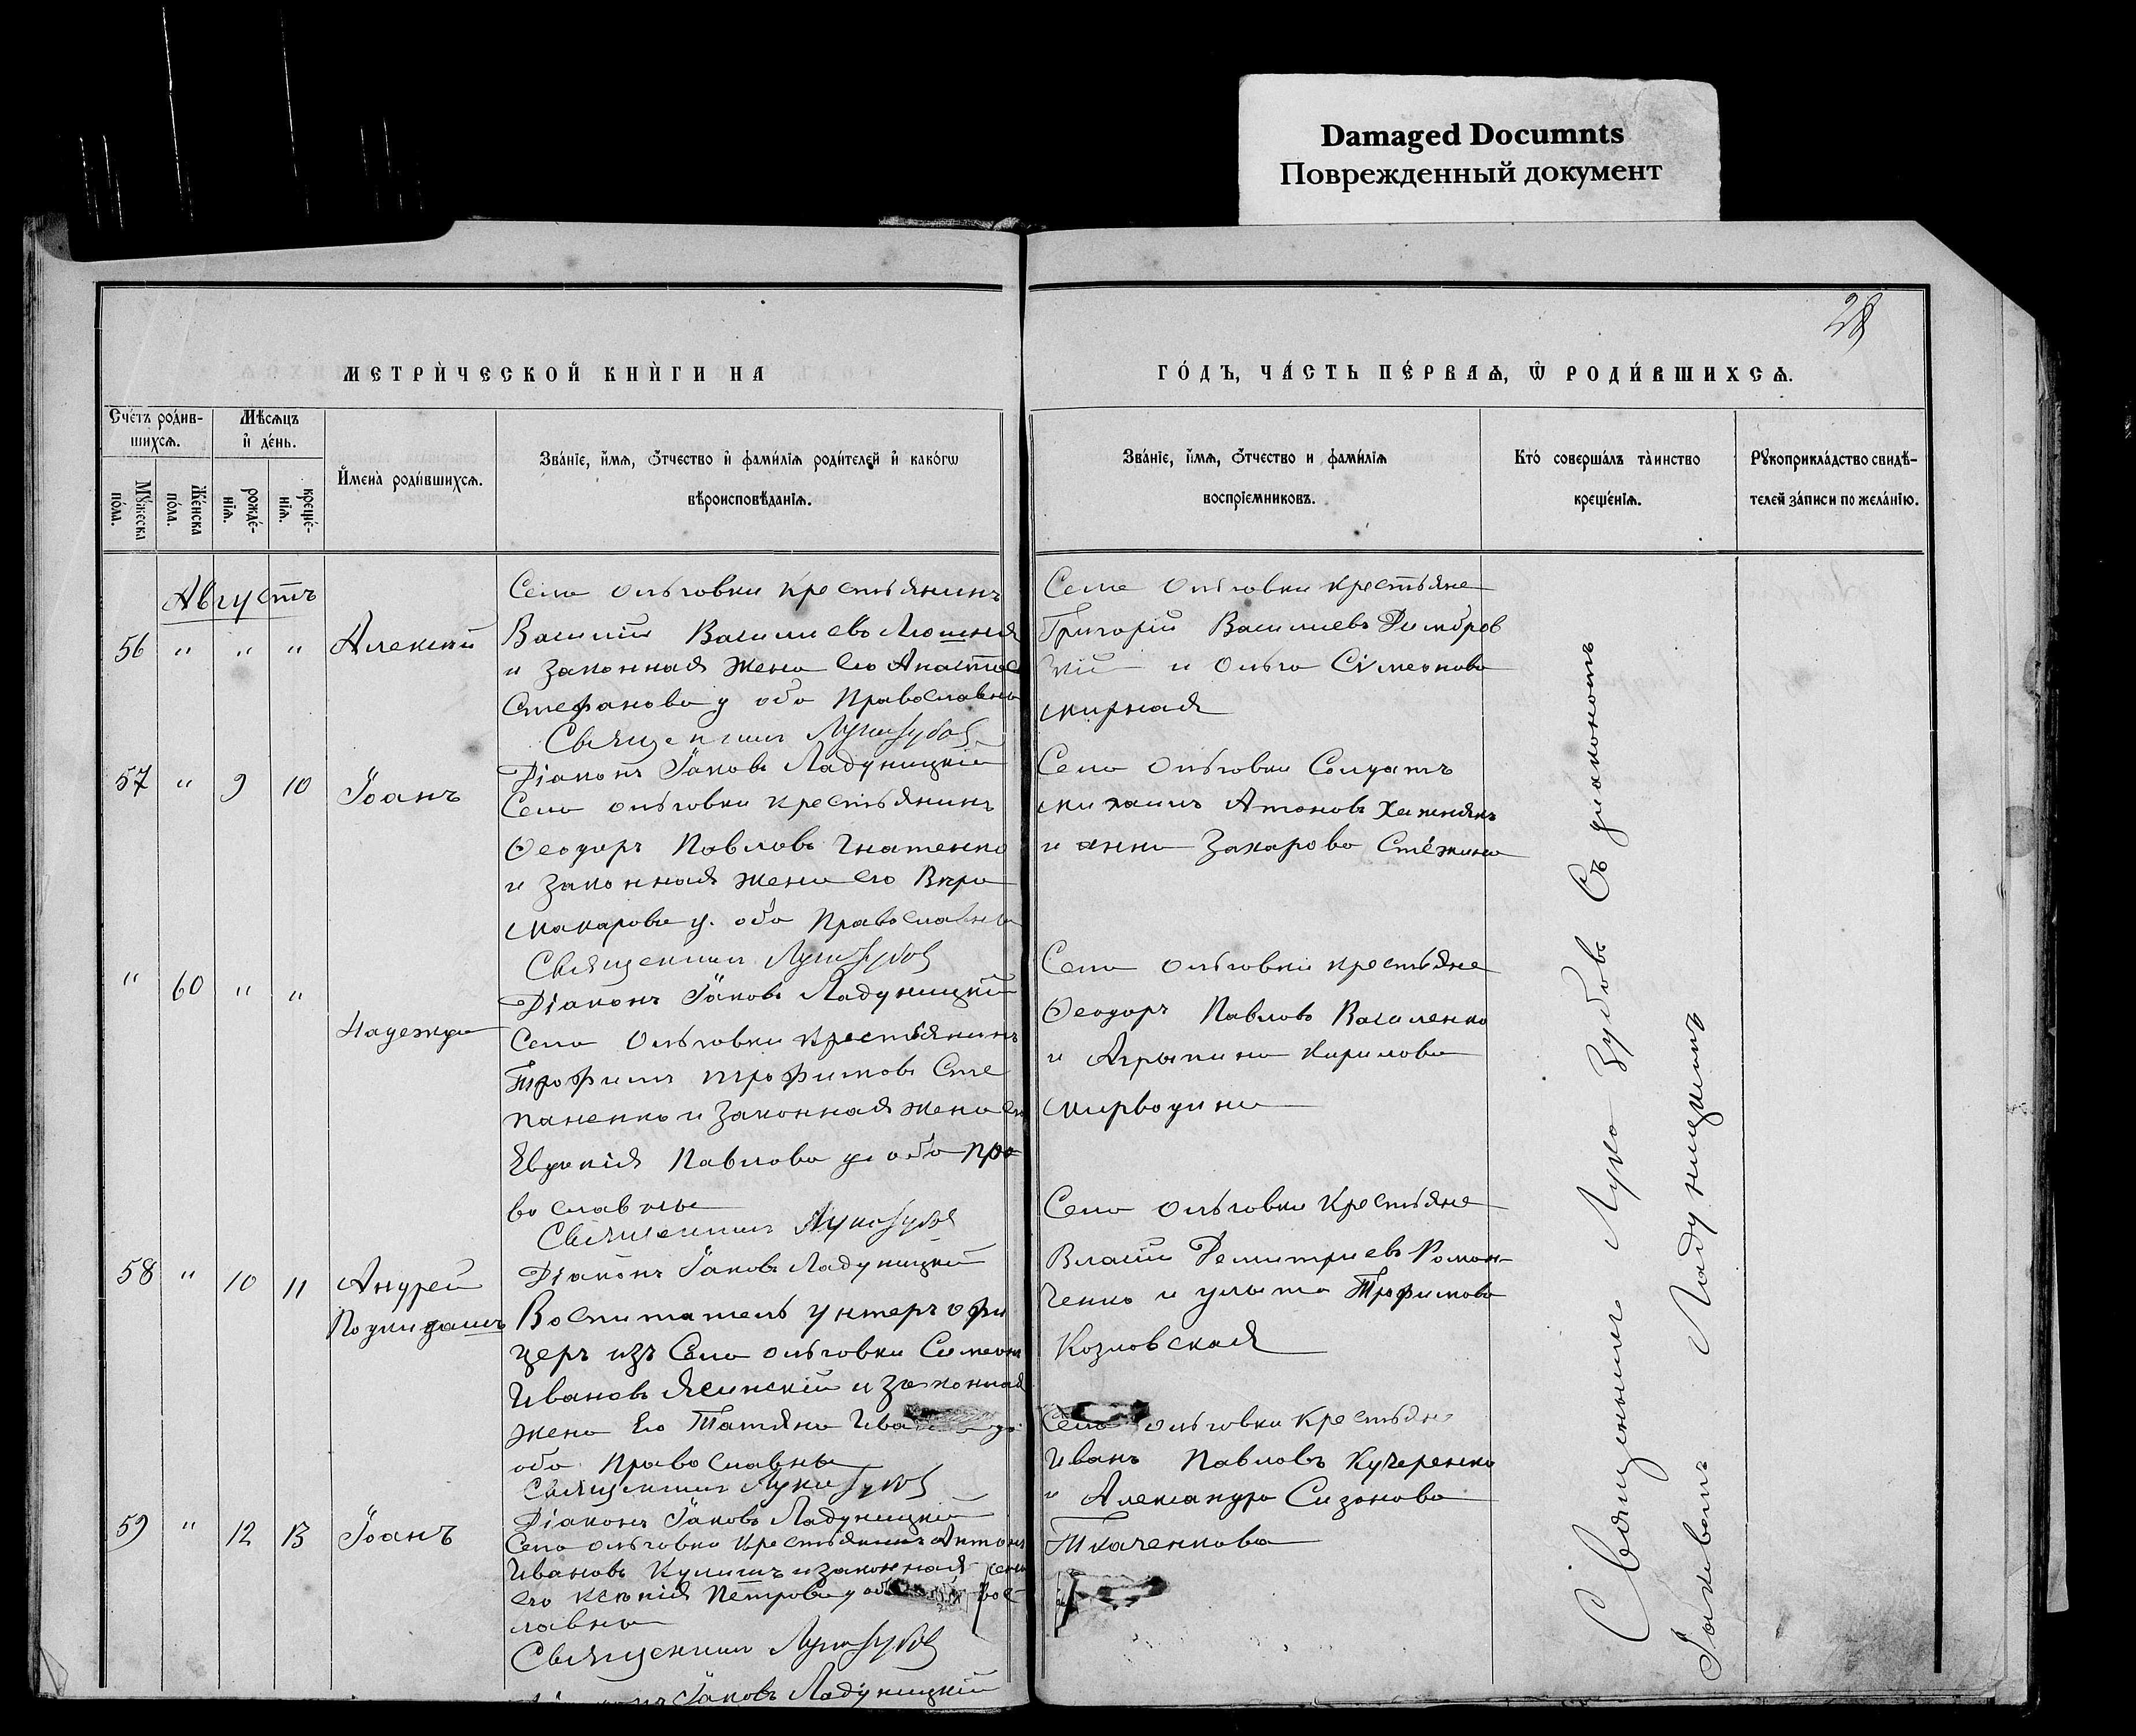 Damaged Documnts
Поврежденный документ
28
МЕТРИ́ЧЕСКОЙ КНИ́ГИ НА
ГО́ДЪ, ЧА́СТЬ ПЕ́РВАѦ, Ѡ РОДИ́ВШИХСѦ.
Сче́тъ роди́вшихсѧ.
Мѣ́сѧцъ и де́нь.
Му́жеска по́ла.
Же́нска по́ла.
рожде́нїѧ.
креще́нїѧ.
И҆мена̀ роди́вшихсѧ.
Зва́нїе, и҆́мѧ, ѻ҆́тчество и҆ фами́лїѧ роди́телей и҆ како́гѡ
вѣроисповѣ́данїѧ.
Зва́нїе, и҆́мѧ, ѻ҆́тчество и фами́лїѧ
воспрїе́мниковъ.
Кто̀ соверша́лъ та̀инство
креще́нїѧ.
Рꙋкоприкла́дство свидѣ́-
телей за́писи по жела́нїю.
Августъ
56 " " " Алексій
Села Ольговки крестьянинъ
Василій Васильевъ
и законная жена его Анастасія
Стефанова у оба Православны
Священникъ Лука Зубовъ
Діаконъ Іаковъ Ладуницкій
Села Ольговки крестьяне
Григорій Васильевъ
и Ольга Сімеонова
57 " 9 10 Іоанъ
Села Ольговки крестьянинъ
Ѳеодоръ Павловъ Гнатенко
и законная жена его Вѣра
Макарова у. оба Православны
Священникъ Лука Зубовъ
Діаконъ Іаковъ Ладуницкій
Села Ольговки Солдатъ
Михаилъ Атоновъ
и анна Захарова
" 60 " " Надежда
Села Ольговки Крестьянинъ
Трофимъ Трофимовъ Сте
паненко и законная жена его
Евдокія Павлова у оба Пра
вославны
Священникъ Лука Зубовъ
Діаконъ Іаковъ Ладуницкій
Села Ольговки крестьяне
Ѳеодоръ Павловъ Василенко
и Агрыпина Кирилова
58 " 10 11 Андрей
Подкидышъ
Воспитатель унтеръ офи
церъ изъ Села Ольговки Симеонъ
Ивановъ Ясинскій и законная
жена Его Татяна
оба Православны
Священникъ Лука Зубовъ
Діаконъ Іаковъ Ладуницкій
Села Ольговки Крестьяне
Власій Демитріевъ Роман-
ченко и улыта Трофимова
Козловская
59 " 12 13 Іоанъ
Села Ольговки Крестьянинъ Антонъ
Ивановъ Кулишъ и законная жена
его Ксенія Петрова у
лавны
Священникъ Лука Зубовъ
Іаковъ Ладуницкій
Села Ольговки Крестьяне
Иванъ Павловъ Кучеренко
и Александра Сизонова
Ткаченкова
Священникъ Лука Зубовъ Съ діакономъ
Іаковомъ Ладуницкимъ